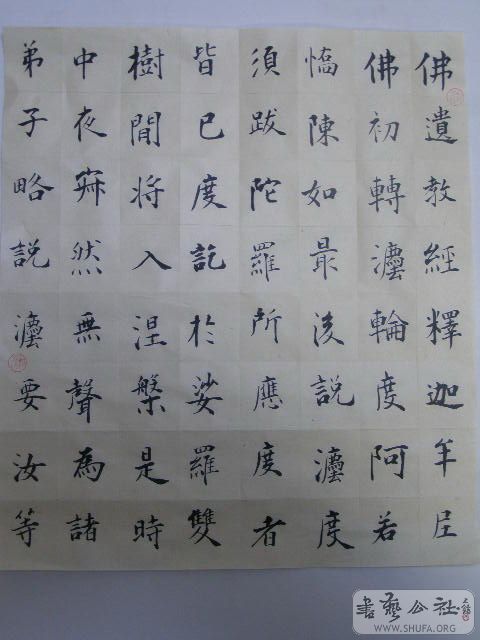 佛遺教經釋迦牟尼
佛初轉灋輪度阿若
憍陳如最後說灋度
須跋陀羅所應度者
皆已度訖於娑羅雙
樹間將入涅槃是時
中夜寂然無聲為諸
弟子略説灋要汝等
書藝公社
WWW.SHUFA.ORG